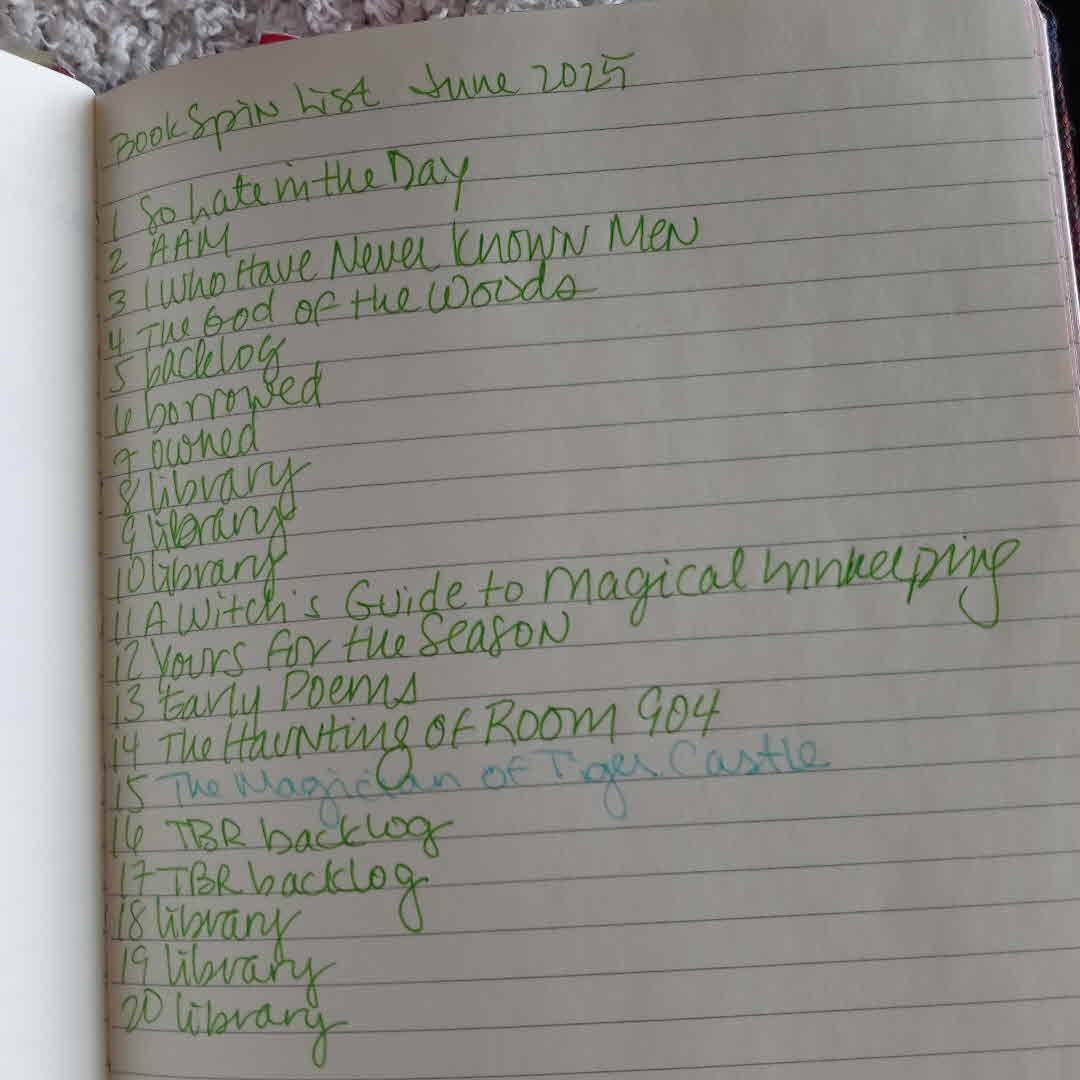 BookSpin List June 2025
1 So Late in the Day
2 AAM
3 I Who Have Never Known Men
4 The God of the Woods
5 backlog
6 borrowed
7 owned
8 library
9 library
10 library
11 A Witch's Guide to Magical Innkeeping
12 Yours for the Season
13 Early Poems
14 The Haunting of Room 904
15 The Magician of Tiger Castle
16 TBR backlog
17 TBR backlog
18 library
19 library
20 library